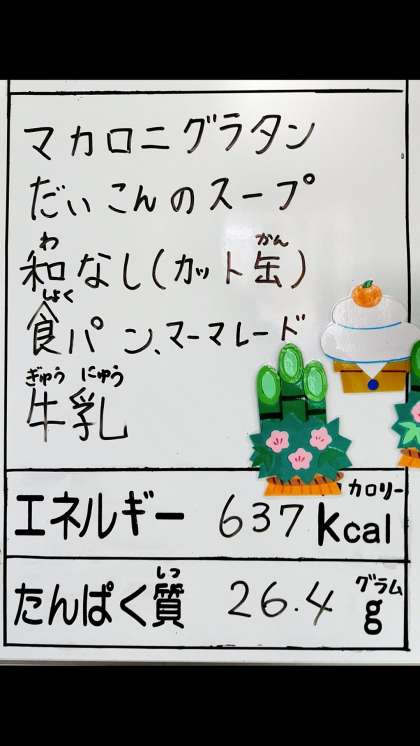 マカロニグラタン
だいこんのスープ
わ かん
和なし(カット缶)
しょく
食パン、マーマレード
ぎゅう にゅう
牛乳
カロリー
エネルギー 637 kcal
しつ グラム
たんぱく質 26.4 g